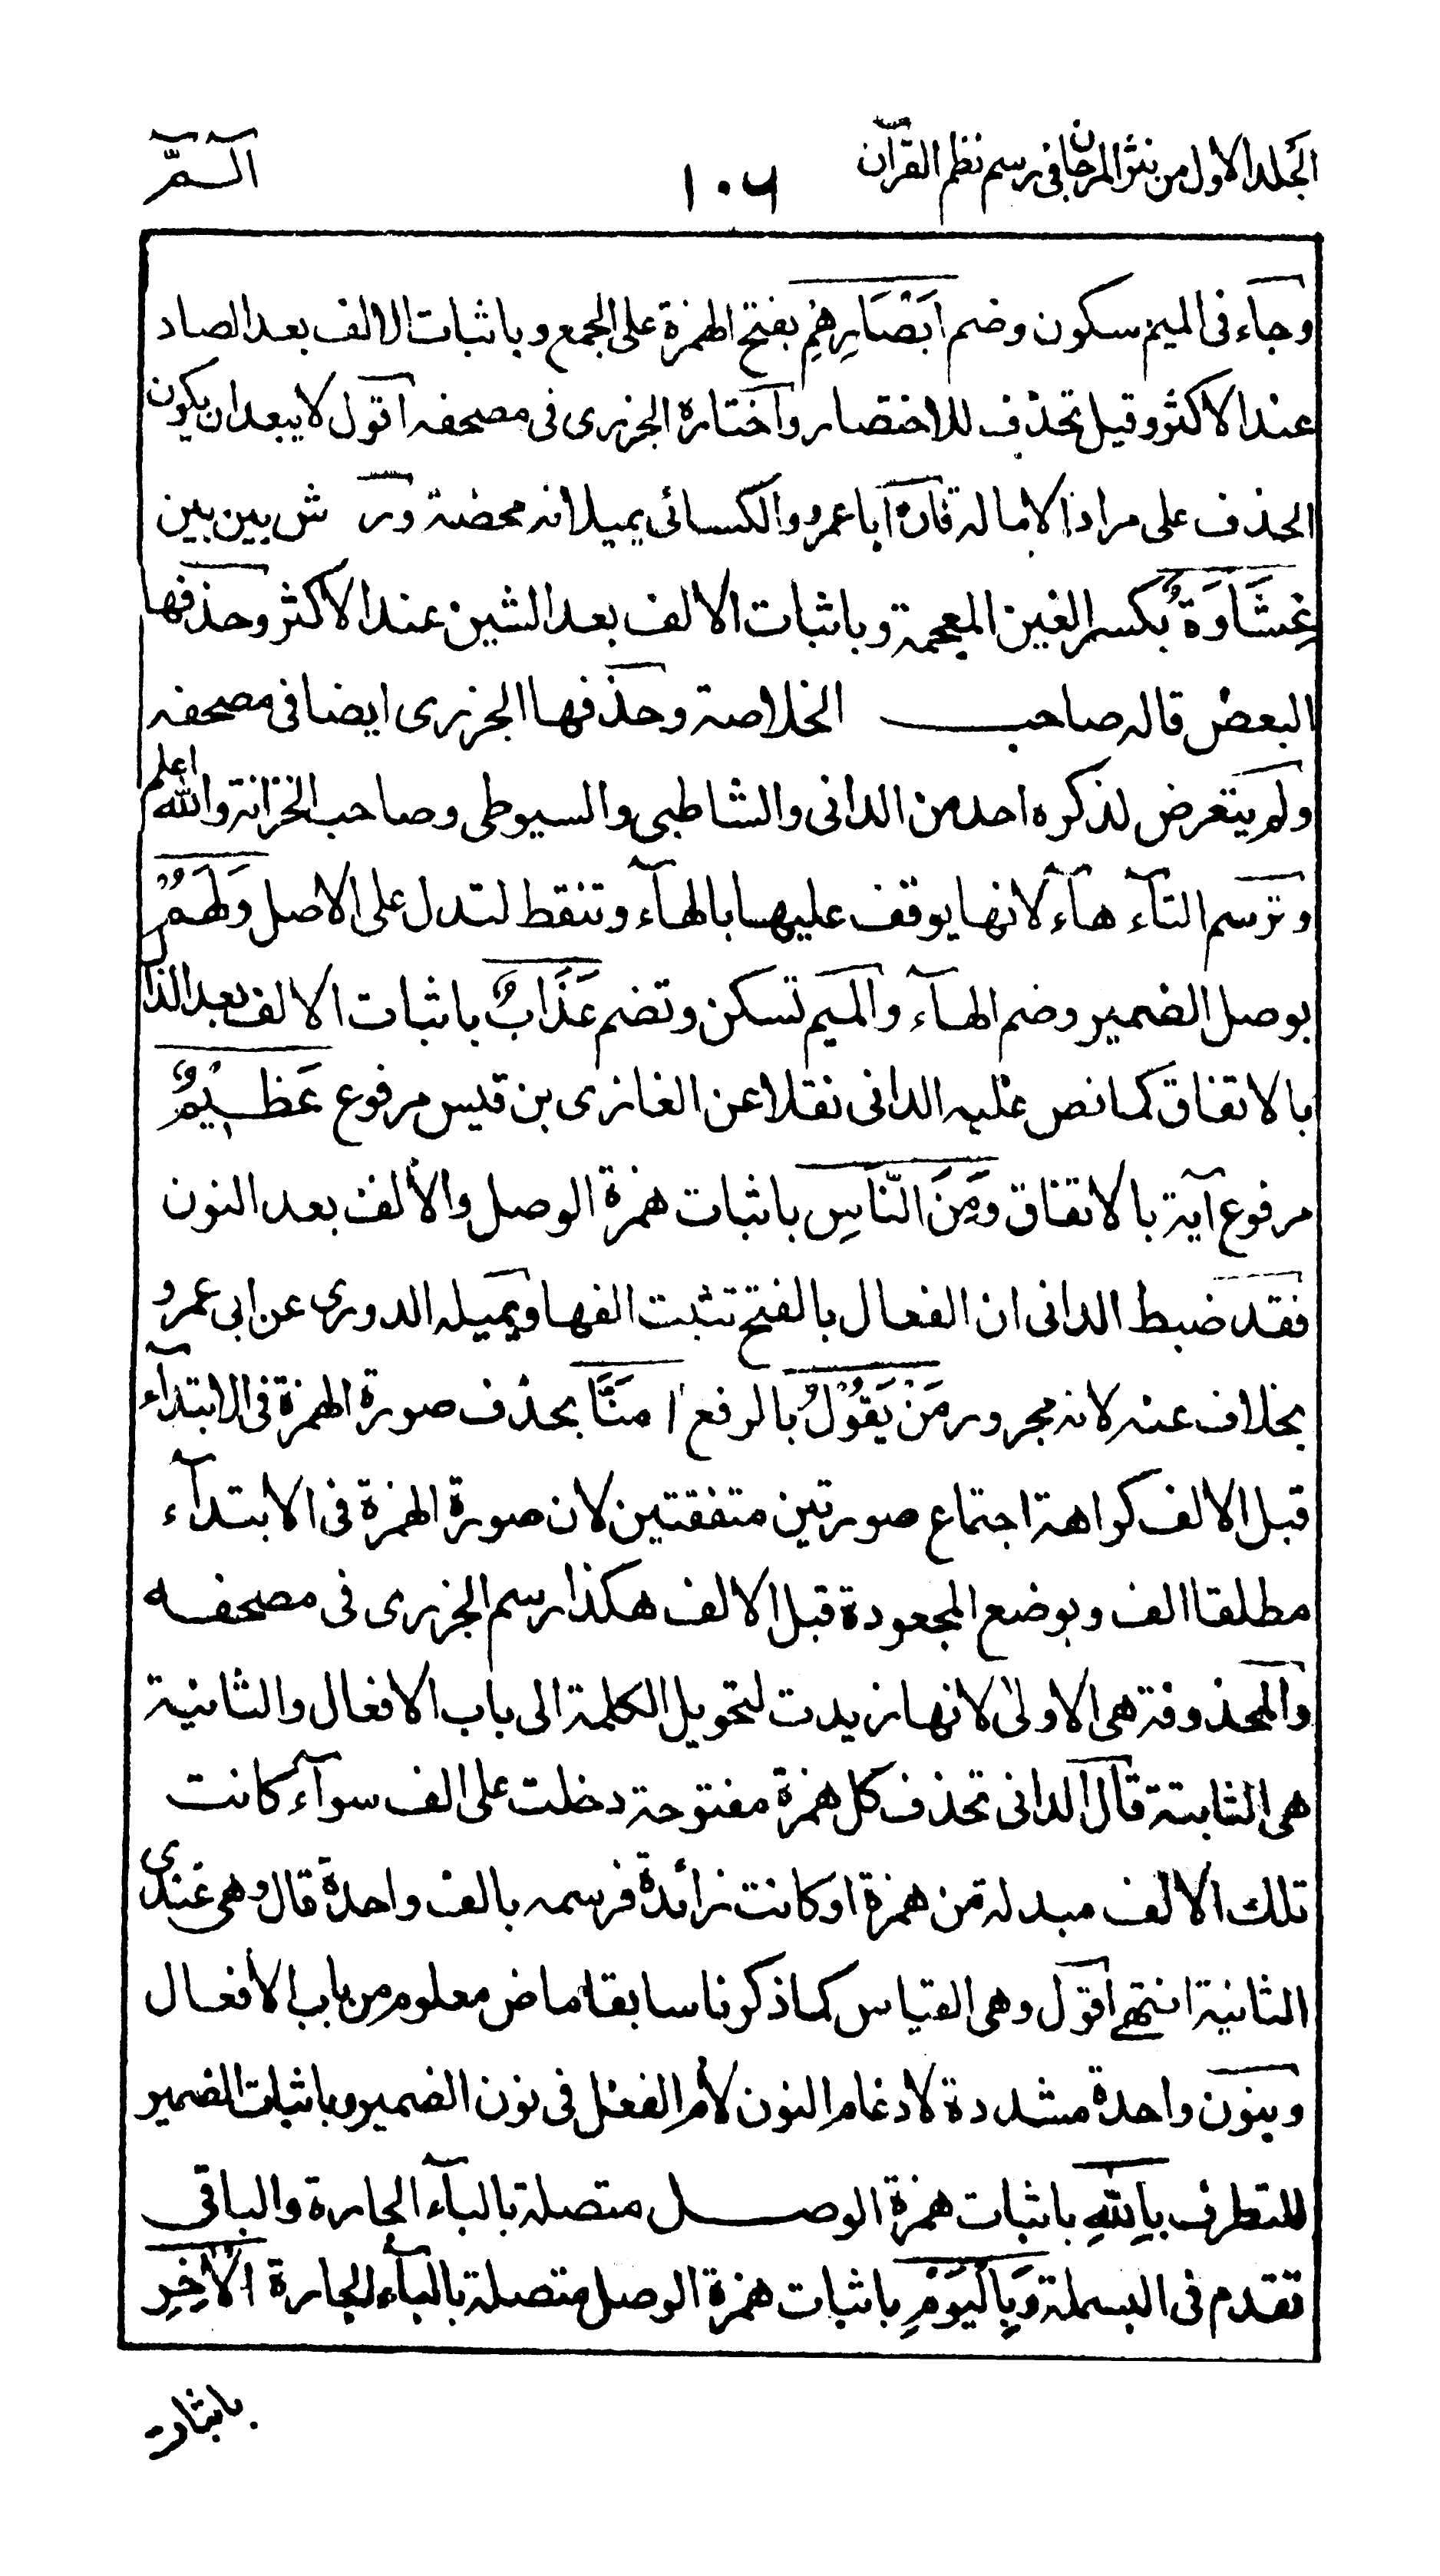 الجلد الاول من نثر المرجان فی رسم نظم القرآن
١٠٦
الٓـمّٓ
وجاء فی المیم سکون وضم اَبْصَارِهِمْ بفتح الهمزة علی الجمع وباثبات الالف بعد الصاد
عند الاکثر وقیل تحذف للاختصار واختاره الجزری فی مصحفه اقول لا یبعد ان یکون
الحذف علی مراد الامالة فان ابا عمرو والکسائی یمیلانه محضة وورش بین بین
غِشَاوَةٌ بکسر الغین المعجمة وباثبات الالف بعد الشین عند الاکثر وحذفها
البعض قاله صاحب الخلاصة وحذفها الجزری ایضا فی مصحفه
ولم یتعرض لذکره احد من الدانی والشاطبی والسیوطی وصاحب الخزانة والله اعلم
وترسم التآء هآء لانها یوقف علیها بالهآء وتنقط لتدل علی الاصل وَلَهُمْ
بوصل الضمیر وضم الهآء والمیم تسکن وتضم عَذَابٌ باثبات الالف بعد الذال
بالاتفاق کما نص علیه الدانی نقلا عن الغازی بن قیس مرفوع عَظِیْمٌ
مرفوع آیة بالاتفاق وَمِنَ النَّاسِ باثبات همزة الوصل والألف بعد النون
فقد ضبط الدانی ان الفعال بالفتح تثبت الفها ویمیله الدوری عن ابی عمرو
بخلاف عنه لانه مجرور مَنْ یَقُوْلُ بالرفع اٰمَنَّا بحذف صورة الهمزة فی الابتدآء
قبل الالف کراهة اجتماع صورتین متفقتین لان صورة الهمزة فی الابتدآء
مطلقا الف وبوضع المجعودة قبل الالف هکذا رسم الجزری فی مصحفه
والمحذوفة هی الاولیٰ لانها زیدت لتحویل الکلمة الی باب الافعال والثانیة
هی الثابتة قال الدانی تحذف کل همزة مفتوحة دخلت علی الف سوآء کانت
تلك الالف مبدلة من همزة او کانت زائدة فرسمه بالف واحدة قال وهی عندی
الثانیة انتهے اقول وهی القیاس کما ذکرنا سابقا ماض معلوم من باب الأفعال
وبنون واحدة مشددة لادغام النون لأم الفعل فی نون الضمیر وباثبات الضمیر
للتطرف بِاللهِ باثبات همزة الوصل متصلة بالبآء الجارة والباقی
تقدم فی البسملة وَبِالْیَوْمِ باثبات همزة الوصل متصلة بالبآء الجارة الْاٰخِرِ
باثبات